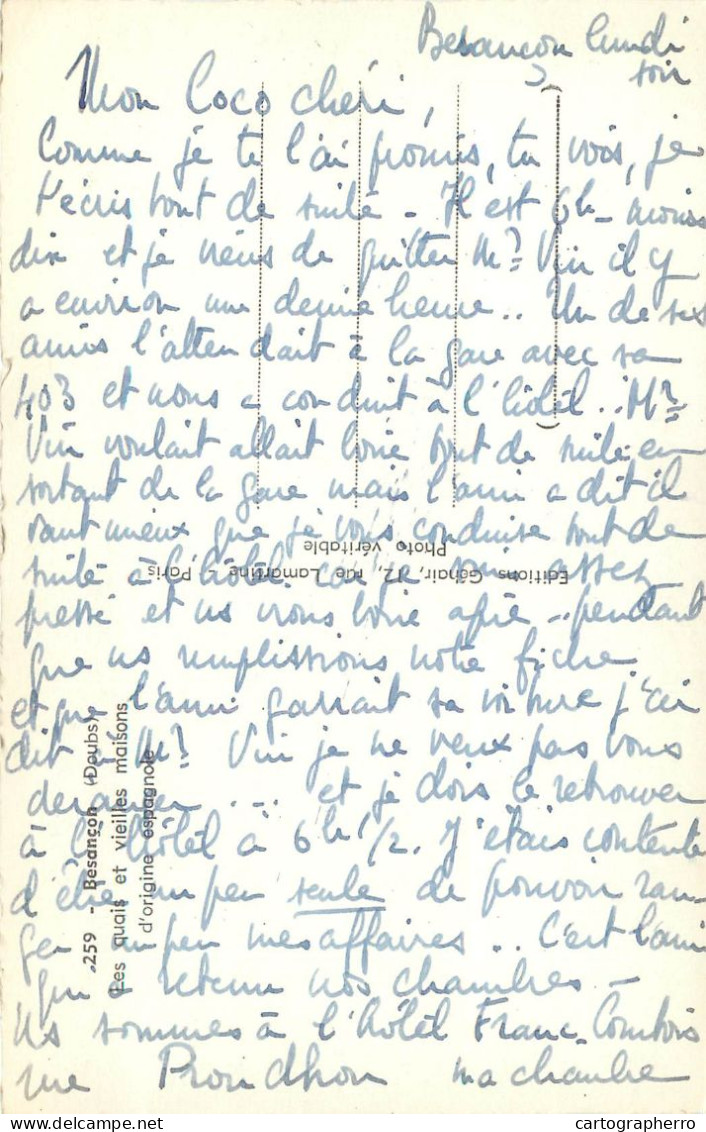 Besançon lundi
soir
Mon Coco chéri,
Comme je te l'ai promis, tu vois, je
t'écris tout de suite - Il est 6h - moins
dix et je viens de quitter Mr Vin il y
a environ une demie heure .. Un de ses
amis l'attendait à la gare avec sa
403 et nous a conduit à l'hôtel .. Mr
Vin voulait allait boire tout de suite en
sortant de la gare mais l'ami a dit il
vaut mieux que je vous conduise tout de
suite à l'hôtel car je suis assez
pressé et ns irons boire après .. pendant
que ns remplissions notre fiche
et que l'ami garait sa voiture j'ai
dit à Mr Vin je ne veux pas vous
déranger ... et je dois le retrouver
à l'hôtel à 6h 1/2. J'étais contente
d'être un peu seule de pouvoir ran-
ger un peu mes affaires .. C'est l'ami
qui a retenu nos chambres -
Ns sommes à l'hôtel Franc-Comtois
rue Proudhon ma chambre
Editions Gehair, 12, rue Lamartine - Paris
Photo véritable
259 - Besançon (Doubs)
Les quais et vieilles maisons
d'origine espagnole
cartographerro